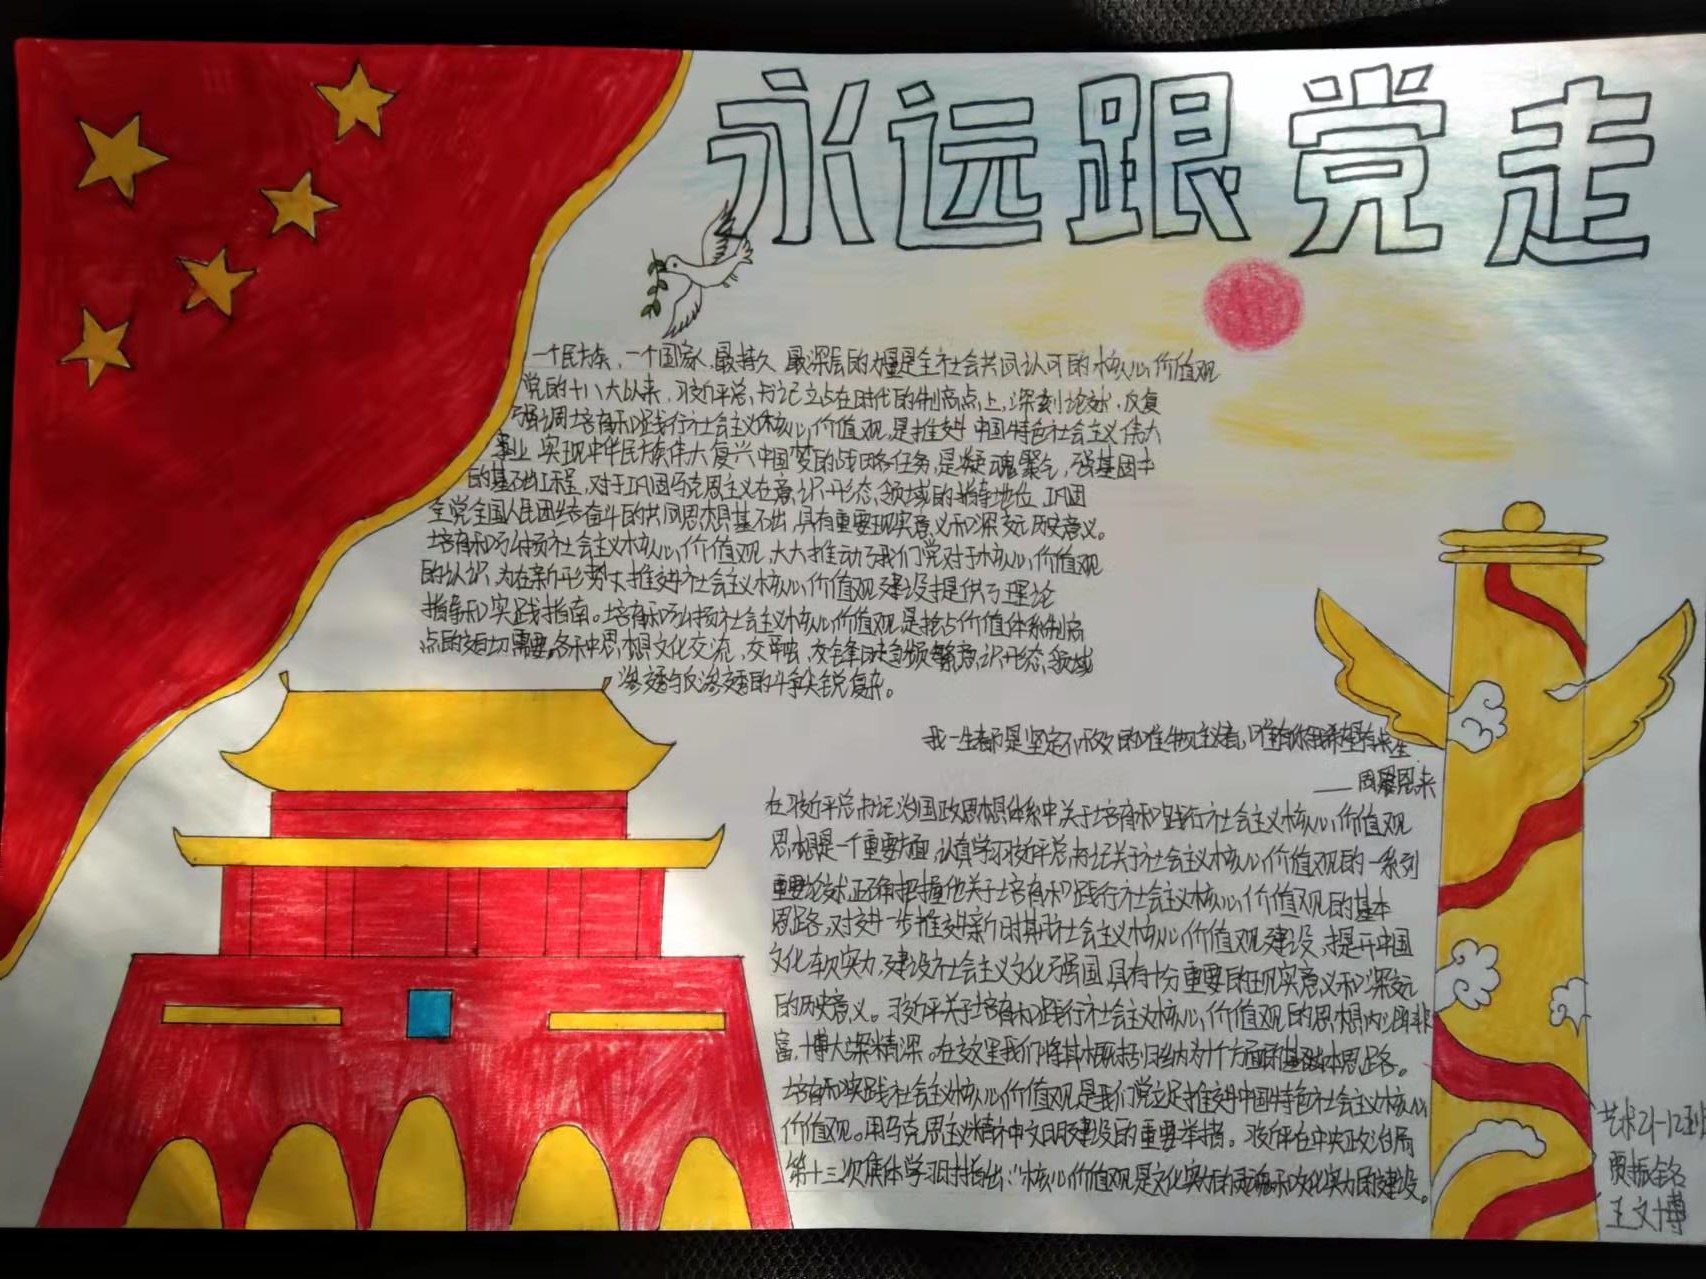 永远跟党走
一个民族、一个国家、最持久、最深层的力量是全社会共同认可的核心价值观
党的十八大以来，习近平总书记立占在时代的制高点上，深刻论述，反复
强调培育和践行社会主义核心价值观，是推进中国特色社会主义伟大
事业、实现中华民族伟大复兴中国梦的战略任务，是凝魂聚气，强基固本
的基础工程，对于巩固马克思主义在意识形态领域的指导地位、巩固
全党全国人民团结奋斗的共同思想基础，具有重要现实意义和深远历史意义。
培育和弘扬社会主义核心价值观，大大推动了我们党对于核心价值观
的认识，为在新形势下推进社会主义核心价值观建设提供了理论
指导和实践指南。培育和弘扬社会主义核心价值观，是抢占价值体系制高
点的迫切需要。各种思想文化交流、交融、交锋日趋频繁，意识形态领域
渗透与反渗透的斗争尖锐复杂。
我一生都是坚定不移的唯物主义者，唯有你我希望有来生
——周恩来
在习近平总书记治国政思想体系中，关于培育和践行社会主义核心价值观
思想是一个重要方面，认真学习习近平总书记关于社会主义核心价值观的一系列
重要论述，正确把握他关于培育和践行社会主义核心价值观的基本
思路，对进一步推进新时期社会主义核心价值观建设，提升中国
文化软实力，建设社会主义文化强国，具有十分重要的现实意义和深远
的历史意义。习近平关于培育和践行社会主义核心价值观的思想内涵非
富，博大深精深。在这里我们将其概括归纳为个方面和基本思路。
培育和实践社会主义核心价值观，是我们党立足推进中国特色社会主义核心
价值观。用马克思主义精神文明建设的重要举措。习近平在中央政治局
第十三次集体学习时指出：“核心价值观是文化软实力灵魂和文化实力的建设。
艺术21-12班
贾振铭
王文博